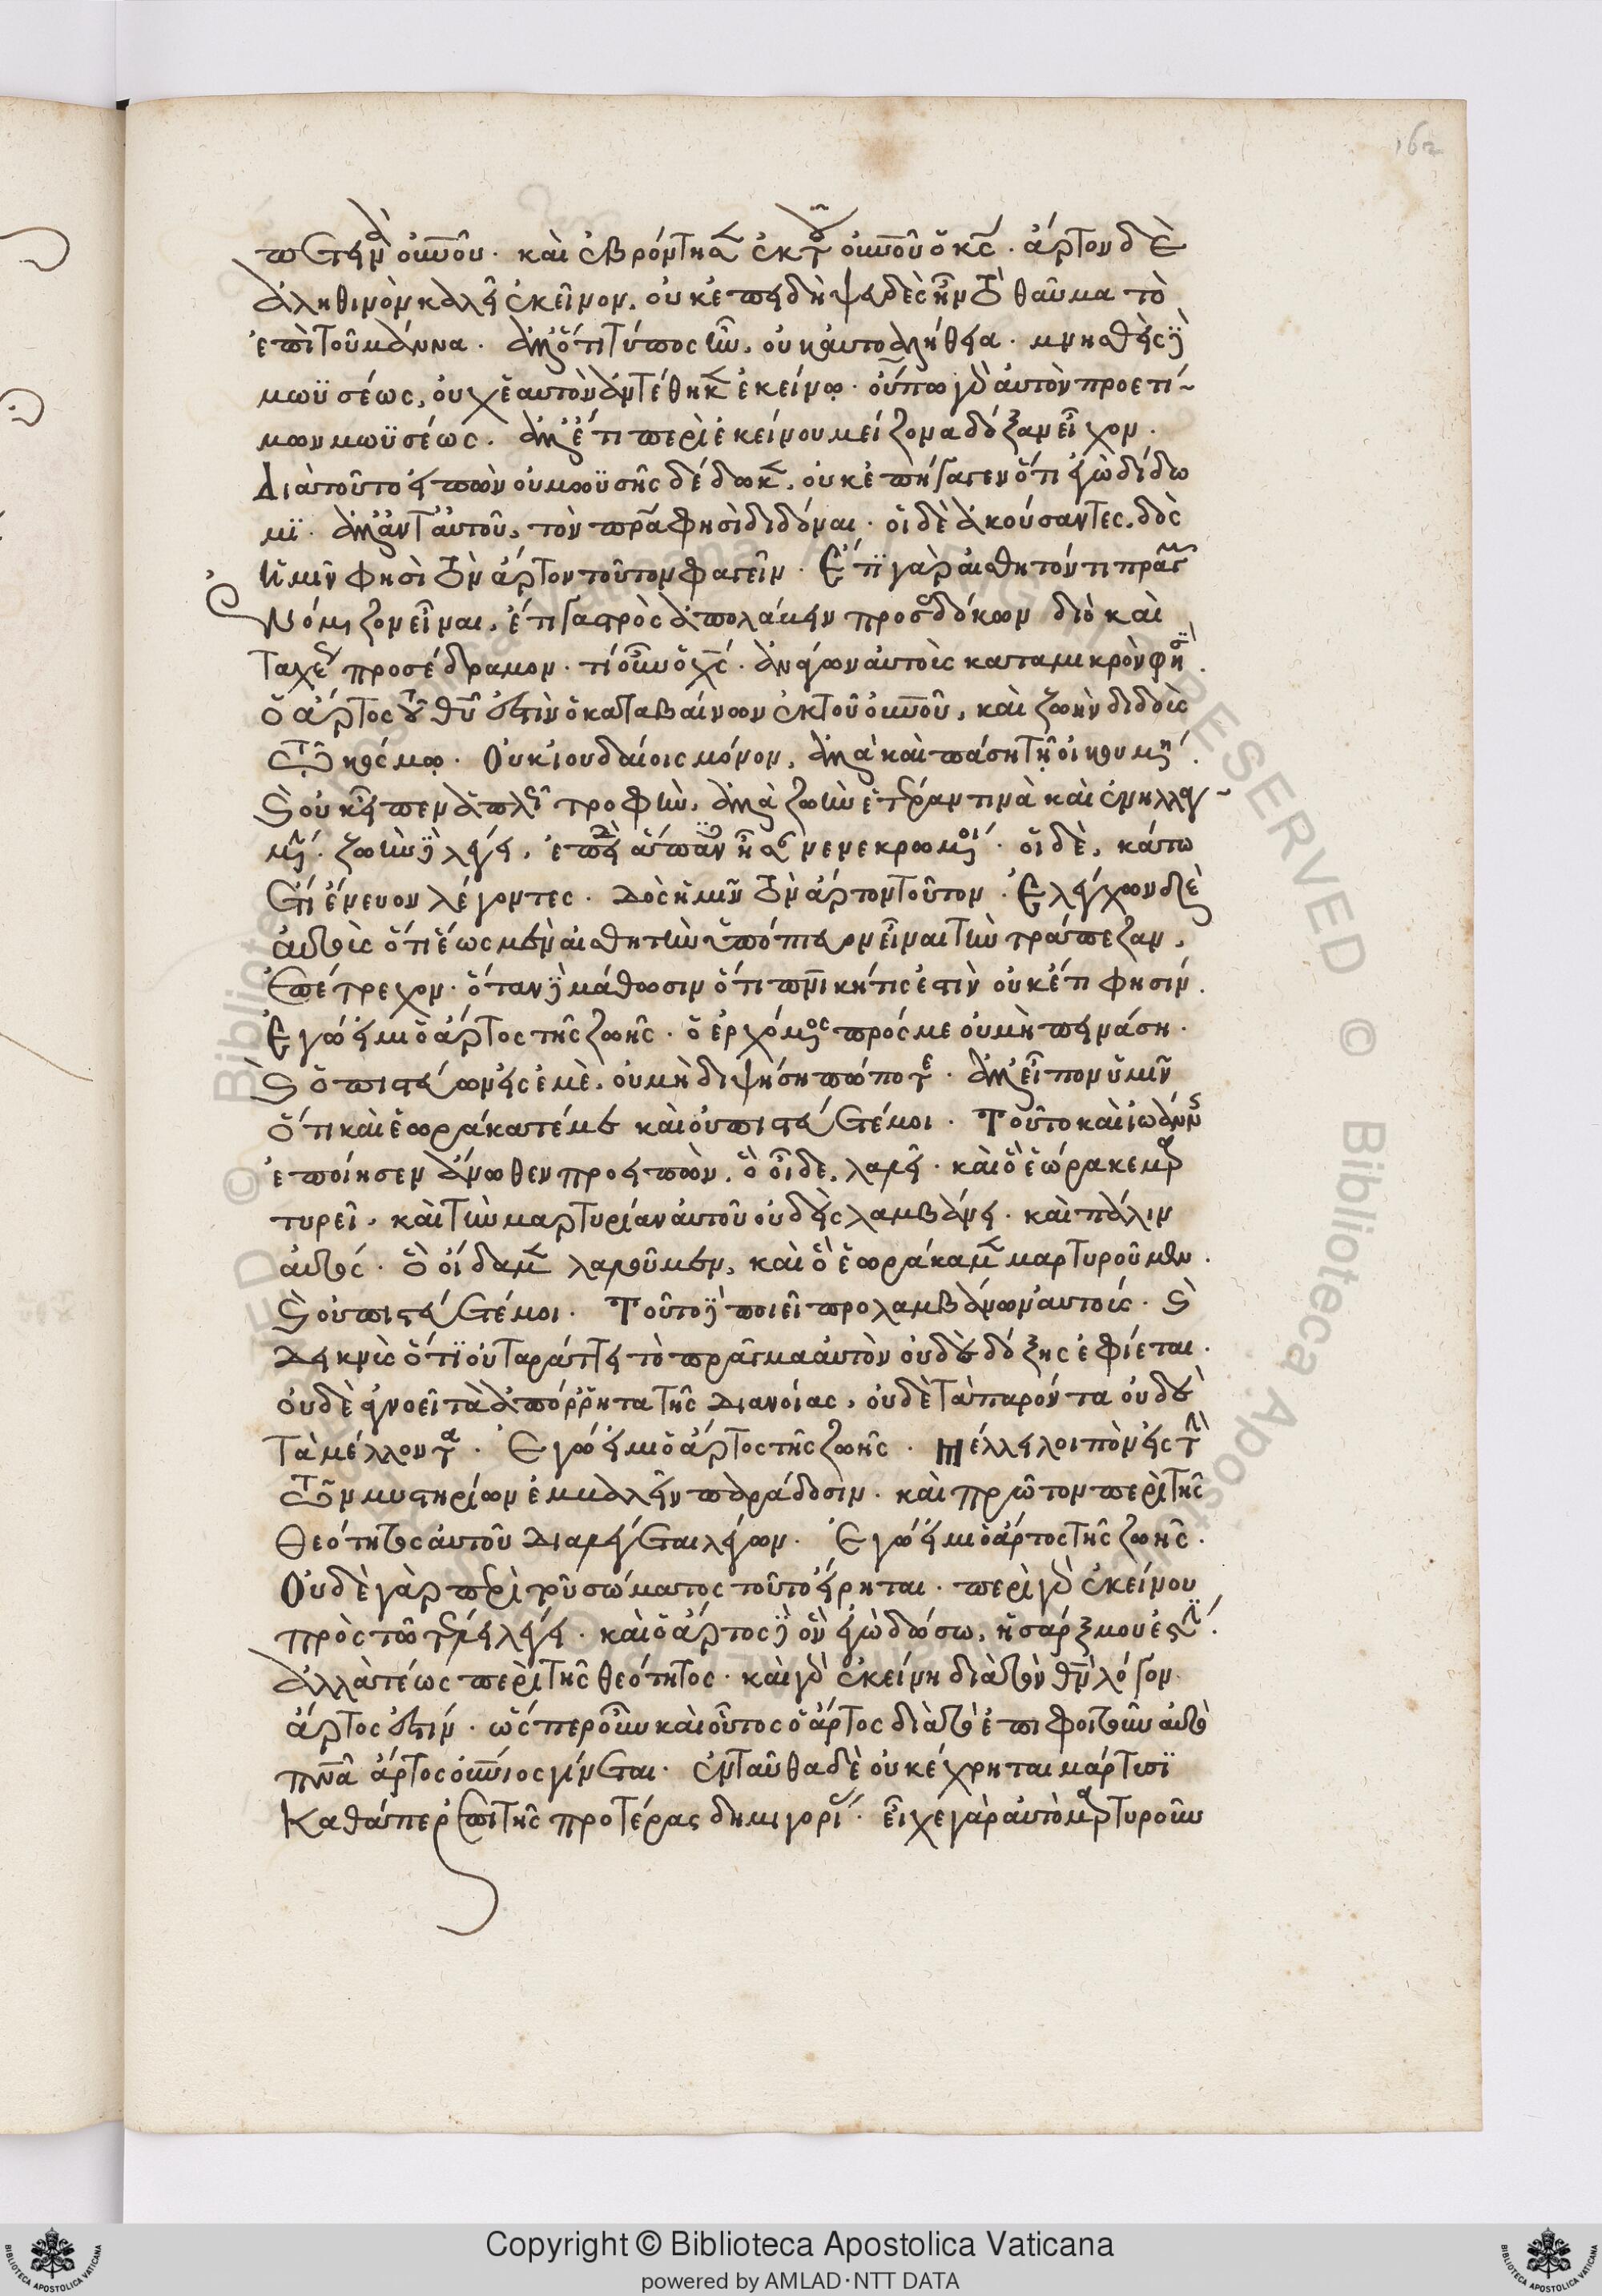 162
πετεινὰ οὐνοῦ. καὶ ἐβρόντησεν ἐκ τοῦ οὐνοῦ ὁ κς. ἄρτον δὲ
ἀληθινὸν καλεῖ ἐκεῖνον, οὐκ ἐπειδὴ ψευδὲς ἦν τὸ θαῦμα τὸ
ἐπὶ τοῦ μάννα. ἀλλ' ὅτι τύπος ἦν, οὐκ αὐτοαλήθεια. μνησθεὶς δὲ
μωϋσέως, οὐχ ἑαυτὸν ἀντέθηκεν ἐκείνω. οὔπω γὰρ αὐτὸν προετί
μων μωϋσέως. ἀλλ' ἔτι περὶ ἐκείνου μείζονα δόξαν εἶχον.
Διὰ τοῦτο εἰπὼν οὐ μωϋσῆς δέδωκεν, οὐκ ἐπήγαγεν ὅτι ἐγὼ δίδω
μι. ἀλλ' ἀντ' αὐτοῦ, τὸν πρα φησὶ διδόναι. οἱ δὲ ἀκούσαντες, δὸς
ἡμῖν φησὶ τὸν ἄρτον τοῦτον φαγεῖν. Ἔτι γὰρ αἰσθητόν τι πρᾶγμα
ἐνόμιζον εἶναι, ἔτι γαστρὸς ἀπολαύειν προσεδόκων διὸ καὶ
ταχέως προσέδραμον. τί οὖν ὁ χς. ἀνάγων αὐτοὺς καταμικρὸν φησὶν.
ὁ ἄρτος τοῦ θυ ἐστὶν ὁ καταβαίνων ἐκ τοῦ οὐνοῦ, καὶ ζωὴν διδοὺς
τῶ κόσμω. Οὐκ ἰουδαίοις μόνον, ἀλλὰ καὶ πάση τῆ οἰκουμένη.
καὶ οὐκ εἶπεν ἁπλῶς τροφὴν, ἀλλὰ ζωὴν ἑτέραν τινὰ καὶ ἐνηλλαγ
μένην. ζωὴν δὲ λέγει, ἐπειδὴ ἅπαντες ἦσαν νενεκρωμένοι. οἱ δὲ, κάτω
ἔτι ἔνευον λέγοντες. Δὸς ἡμῖν τὸν ἄρτον τοῦτον. Ἐλέγχων δὲ
αὐτοὺς ὅτι ἕως μὲν αἰσθητὴν ὑπώπτευον εἶναι τὴν τράπεζαν,
ἐπέτρεχον. ὅταν δὲ μάθωσιν ὅτι πνικήτις ἐστὶν οὐκέτι φησίν.
Ἐγώ εἰμι ὁ ἄρτος τῆς ζωῆς. ὁ ἐρχόμενος πρός με οὐ μὴ πεινάση.
καὶ ὁ πιστεύων εἰς ἐμὲ, οὐ μὴ διψήση πώποτε. ἀλλ' εἶπον ὑμῖν
ὅτι καὶ ἑωράκατέ με καὶ οὐ πιστεύετέ μοι. Τοῦτο καὶ ἰωάννης
ἐποίησεν ἄνωθεν προειπὼν, ὃ οἶδε, λαλεῖ. καὶ ὃ ἑώρακε μαρ
τυρεῖ, καὶ τὴν μαρτυρίαν αὐτοῦ οὐδεὶς λαμβάνει. καὶ πάλιν
αὐτός. ὃ οἴδαμεν λαλοῦμεν, καὶ ὃ ἑωράκαμεν μαρτυροῦμεν.
καὶ οὐ πιστεύετέ μοι. Τοῦτο δὲ ποιεῖ προλαμβάνων αὐτούς. καὶ
δεικνὺς ὅτι οὐ ταράττει τὸ πρᾶγμα αὐτὸν οὐδὲ δόξης ἐφίεται.
οὐδὲ ἀγνοεῖ τὰ ἀπόρρητα τῆς διανοίας, οὐδὲ τὰ παρόντα οὐδὲ
τὰ μέλλοντα. Ἐγώ εἰμι ὁ ἄρτος τῆς ζωῆς. Μέλλει λοιπὸν εἰς τὴν
τῶν μυστηρίων ἐμβαλεῖν παράδοσιν. καὶ πρῶτον περὶ τῆς
θεότητος αὐτοῦ διαλέγεται λέγων. Ἐγώ εἰμι ὁ ἄρτος τῆς ζωῆς.
Οὐδὲ γὰρ περὶ τοῦ σώματος τοῦτο εἴρηται. περὶ γὰρ ἐκείνου
πρὸς τῶ τέλει λέγει. καὶ ὁ ἄρτος δὲ ὃν ἐγὼ δώσω, ἡ σάρξ μου ἐστίν.
ἀλλὰ τέως περὶ τῆς θεότητος. καὶ γὰρ ἐκείνη διὰ τὸν θν λόγον
ἄρτος ἐστίν. ὥσπερ οὖν καὶ οὗτος ὁ ἄρτος διὰ τὸ ἐπιφοιτῶν αὐτῶ
πνα ἄρτος οὐνιος γίνεται. ἐνταῦθα δὲ οὐ κέχρηται μάρτυσι
καθάπερ ἐπὶ τῆς προτέρας δημηγορίας. εἶχε γὰρ αὐτὸ μαρτυροῦν
Copyright © Biblioteca Apostolica Vaticana
powered by AMLAD·NTT DATA